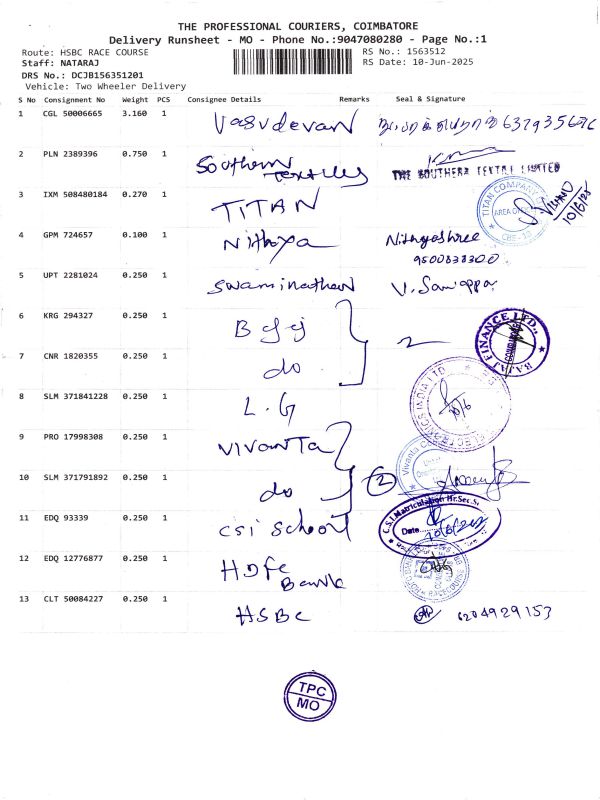 THE PROFESSIONAL COURIERS, COIMBATORE
Delivery Runsheet - MO - Phone No.:9047080280 - Page No.:1
Route: HSBC RACE COURSE
RS No.: 1563512
Staff: NATARAJ
RS Date: 10-Jun-2025
DRS No.: DCJB156351201
Vehicle: Two Wheeler Delivery
S No Consignment No Weight PCS Consignee Details Remarks Seal & Signature
1 CGL 50006665 3.160 1 Vasudevan
2 PLN 2389396 0.750 1 Southern Textiles THE SOUTHERN TEXTILE LIMITED
3 IXM 508480184 0.270 1 TITAN TITAN COMPANY 10/6/25
4 GPM 724657 0.100 1 Nithya Nithyashree
9500838300
5 UPT 2281024 0.250 1 Swaminathan
6 KRG 294327 0.250 1 2 BAJAJ FINANCE LTD.,
7 CNR 1820355 0.250 1 do
8 SLM 371841228 0.250 1 L.G 10/6
9 PRO 17998308 0.250 1 VIVANTA Vivanta
10 SLM 371791892 0.250 1 do 2
11 EDQ 93339 0.250 1 CSI School C.S.I Matriculation Hr.Sec.S Date
12 EDQ 12776877 0.250 1 Hdfc Bank
13 CLT 50084227 0.250 1 HSBC 6204929153
TPC
MO